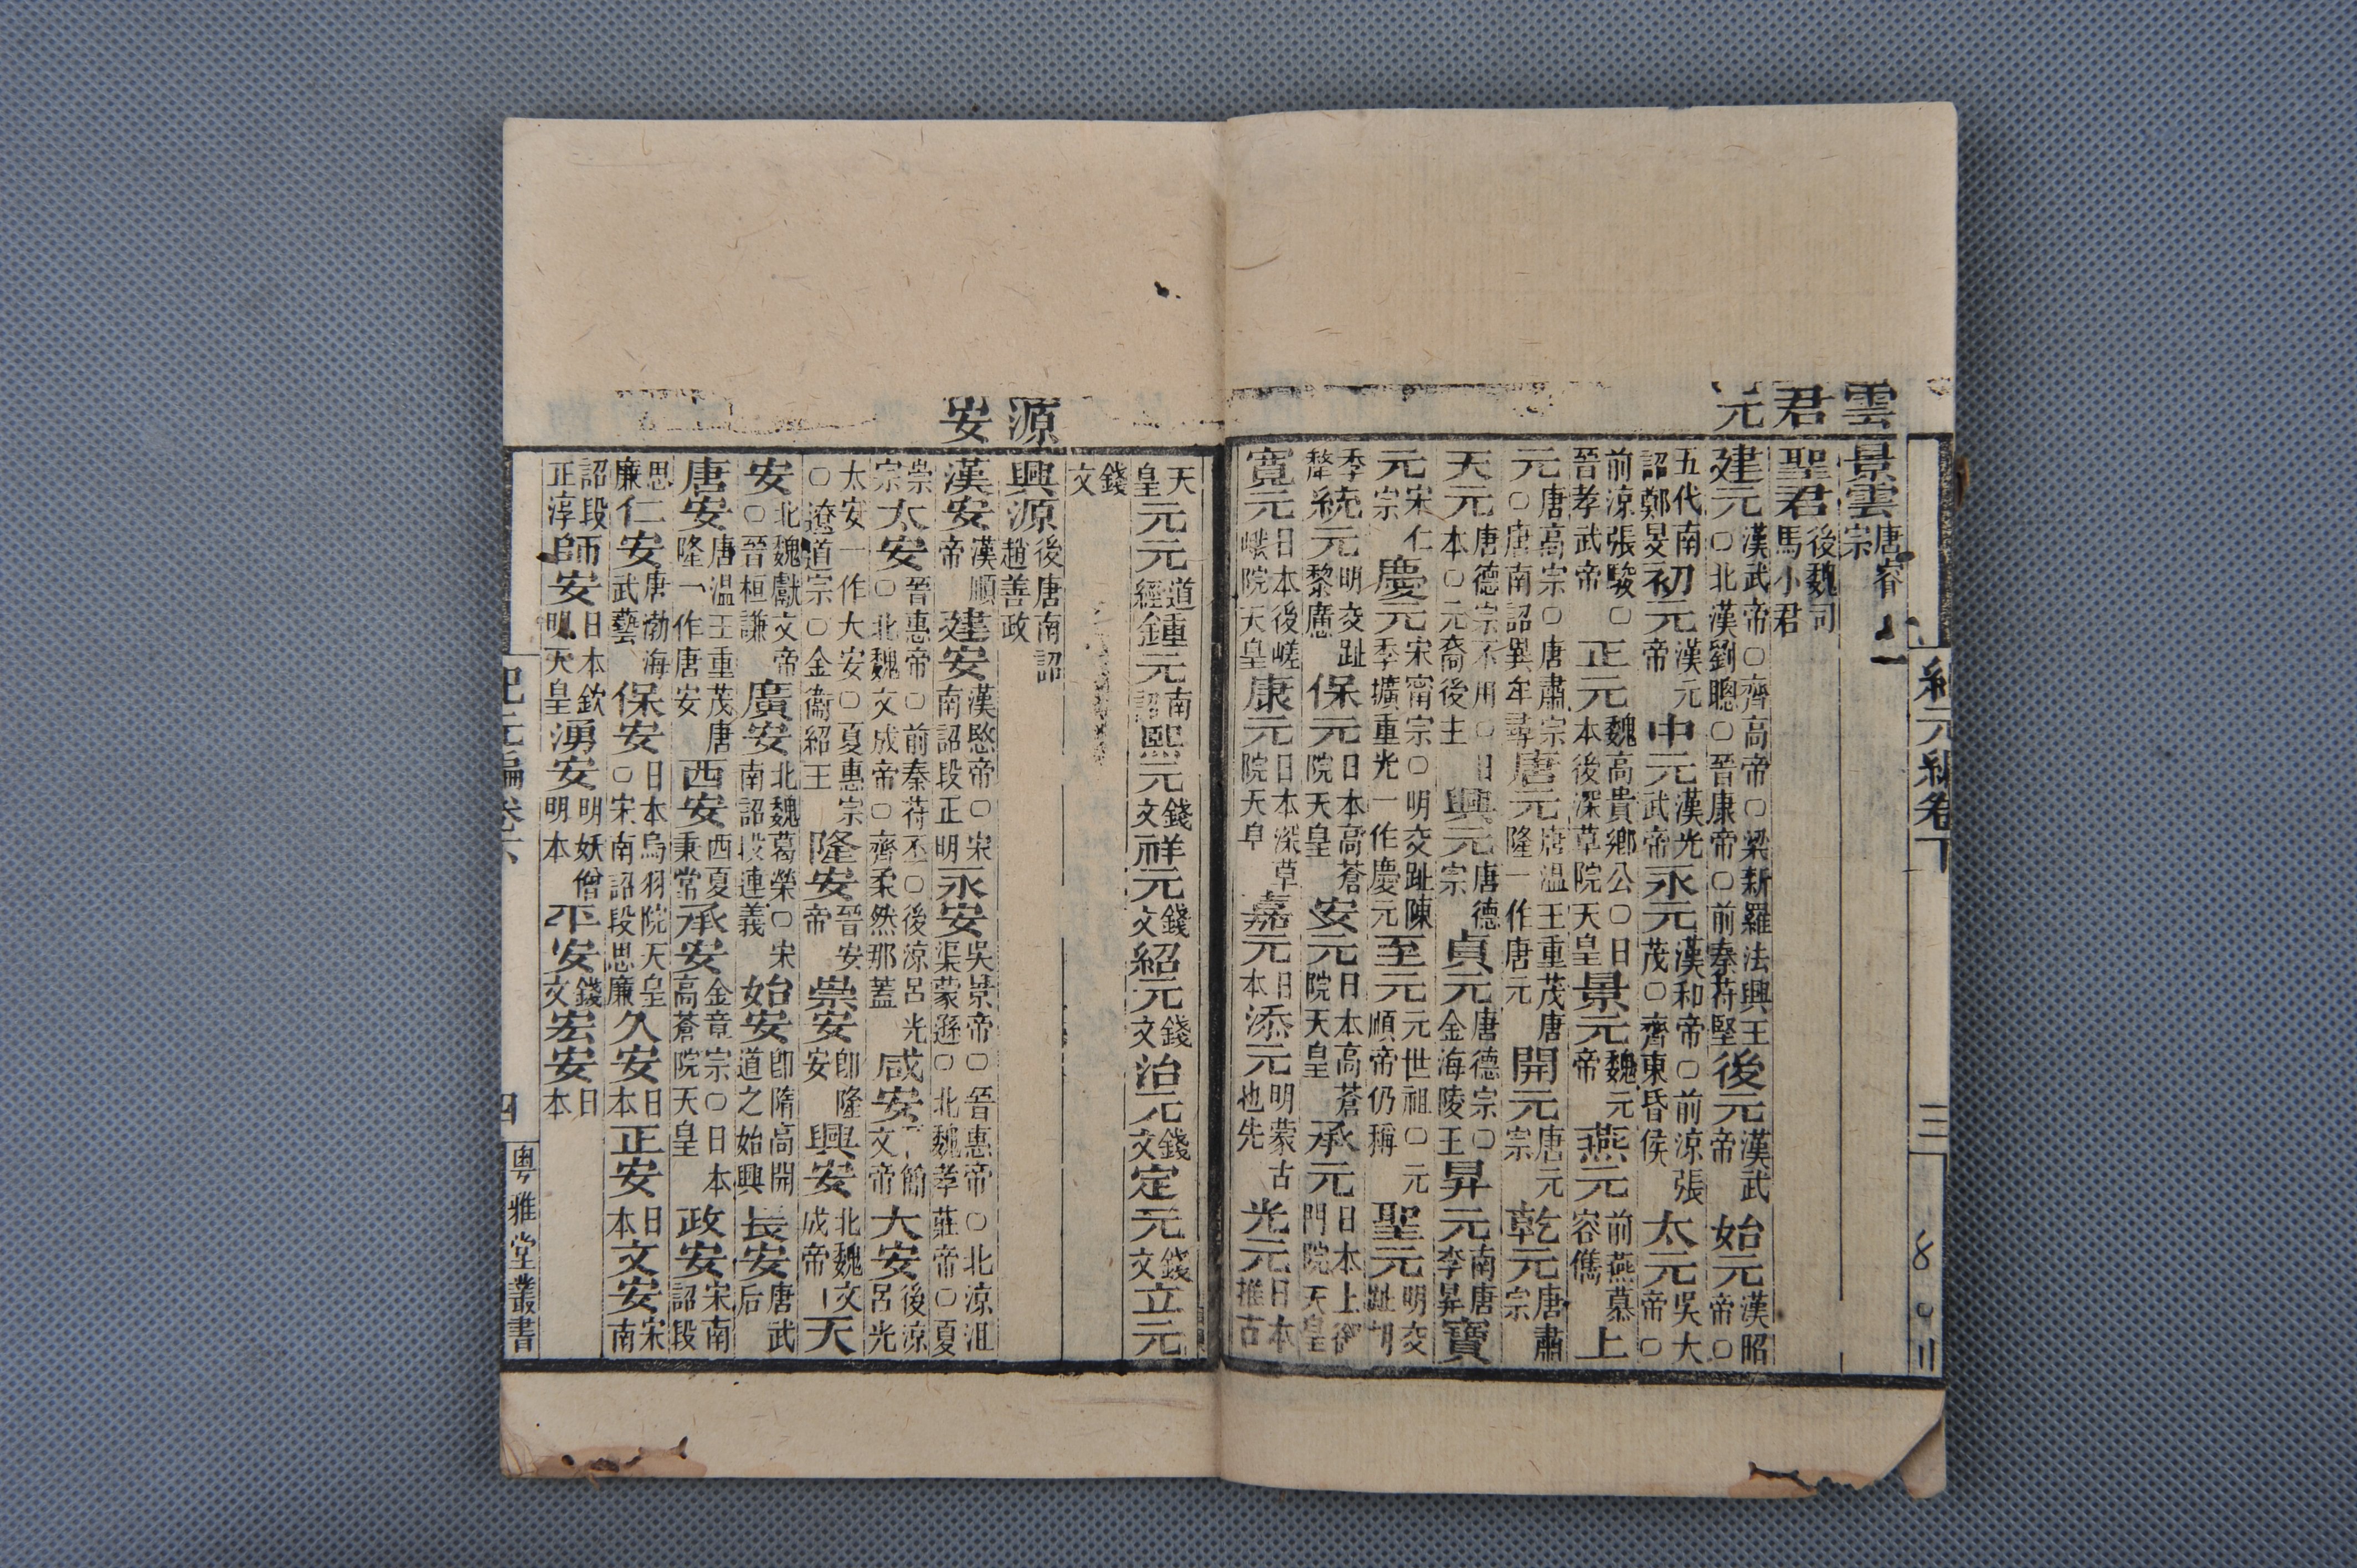 雲 君 元
景雲 唐睿宗
聖君 後魏司馬小君
建元 漢武帝○齊高帝○梁新羅法興王○北漢劉聰○晉康帝○前秦苻堅 後元 漢武帝 始元 漢昭帝○
五代南詔鄭旻 初元 漢元帝 中元 漢光武帝 永元 漢和帝○前涼張茂○齊東昏侯 太元 吳大帝○
前涼張駿○晉孝武帝 正元 魏高貴鄉公○日本後深草院天皇 景元 魏元帝 燕元 前燕慕容儁 上
元 唐高宗○唐肅宗○唐南詔異牟尋 唐元 唐温王重茂唐隆一作唐元 開元 唐元宗 乾元 唐肅宗
天元 唐德宗不用○日本○元裔後主 興元 唐德宗 貞元 唐德宗○金海陵王 昇元 南唐李昪 寶
元 宋仁宗 慶元 宋甯宗○明交趾陳季擴重光一作慶元 至元 元世祖○元順帝仍稱 聖元 明交趾胡
季犛 統元 明交趾黎廌 保元 日本高蒼院天皇 安元 日本高蒼院天皇 承元 日本上御門院天皇
寬元 日本後嵯峨院天皇 康元 日本深草院天皇 嘉元 日本 添元 明蒙古也先 光元 日本推古
紀元編卷下 三
源 安
天皇 元元 道經 鍾元 南詔 熙元 錢文 祥元 錢文 紹元 錢文 治元 錢文 定元 錢文 立元
錢文
興源 後唐南詔趙善政
漢安 漢順帝 建安 漢愍帝○宋南詔段正明 永安 吳景帝○晉惠帝○北涼沮渠蒙遜○北魏孝莊帝○夏
崇宗 太安 晉惠帝○前秦苻丕○後涼呂光○北魏文成帝○齊柔然那蓋 咸安 簡文帝 大安 後涼呂光
太安一作大安○夏惠宗○遼道宗○金衞紹王 隆安 晉安帝 崇安 卽隆安 興安 北魏文成帝 天
安 北魏獻文帝○晉桓謙 廣安 北魏葛榮○宋南詔段連義 始安 卽隋高開道之始興 長安 唐武后
唐安 唐温王重茂唐隆一作唐安 西安 西夏秉常 承安 金章宗○日本高蒼院天皇 政安 宋南詔段
思廉 仁安 唐渤海武藝 保安 日本鳥羽院天皇○宋南詔段思廉 久安 日本 正安 日本 文安 宋南
詔段正淳 師安 日本欽明天皇 湧安 明妖僧明本 平安 錢文 宏安 日本
紀元編卷下 四 粵雅堂叢書